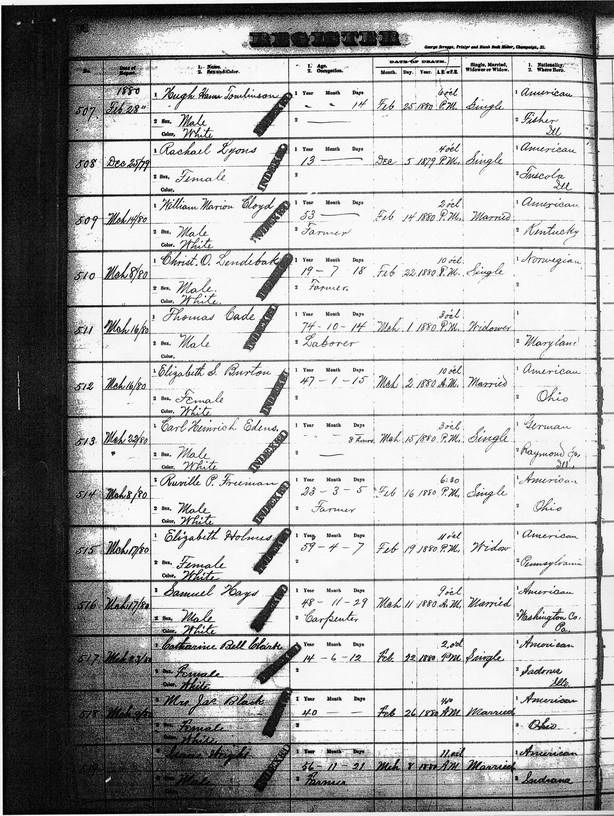 REGISTER
George Scroggs, Printer and Blank Book Maker, Champaign, Ill.
No. Date of Report. 1. Name. 2. Sex and Color. 1. Age. 2. Occupation. DATE OF DEATH. Month. Day. Year. Single, Married, Widower or Widow. 1. Nationality. 2. Where Born.
1880
507 Feb 28" 1 Hugh Tomlinson 1 Year Month Days 14 Feb 25 1880 P.M. Single 1 American
2 Sex, Male 2 2 Fisher
Color, White Ill
INDEXED
508 Dec 25/79 1 Rachael Lyons 1 Year Month Days 13 Dec 5 1879 P.M. Single 1 American
2 Sex, Female 2 2 Tuscola
Color, Ill
INDEXED
509 Mch 14/80 1 William Marion Cloyd 1 Year Month Days 53 Feb 14 1880 P.M. Married 1 American
2 Sex, Male 2 Farmer 2 Kentucky
Color, White
INDEXED
510 Mch 8/80 1 Christ. O. Lendebak 1 Year Month Days 19-7 18 Feb 22 1880 P.M. Single 1 Norwegian
2 Sex, Male 2 Farmer 2
Color, White
INDEXED
511 Mch 16/80 1 Thomas Cade 1 Year Month Days 74-10-14 Mch 1 1880 P.M. Widower 1
2 Sex, Male 2 Laborer 2 Maryland
Color,
INDEXED
512 Mch 16/80 1 Elizabeth S. Burton 1 Year Month Days 47-1-15 Mch 2 1880 A.M. Married 1 American
2 Sex, Female 2 2 Ohio
Color, White
INDEXED
513 Mch 22/80 1 Carl Heinrich Edens, 1 Year Month Days 3 hours Mch 15 1880 P.M. Single 1 German
2 Sex, Male 2 2 Raymond
Color, White Ill.
INDEXED
514 Mch 8/80 1 P. Freeman 1 Year Month Days 23-3-5 Feb 16 1880 P.M. Single 1 American
2 Sex, Male 2 Farmer 2 Ohio
Color, White
INDEXED
515 Mch 17/80 1 Elizabeth Holmes 1 Year Month Days 59-4-7 Feb 19 1880 P.M. Widow 1 American
2 Sex, Female 2 2 Pennsylvania
Color, White
INDEXED
516 Mch 17/80 1 Samuel Hays 1 Year Month Days 48-11-29 Mch 11 1880 A.M. Married 1 American
2 Sex, Male 2 Carpenter 2 Washington Co.
Color, White Pa
517 Mch 23/80 1 Catharine Bell Clark 1 Year Month Days 14-6-12 Feb 22 1880 P.M. Single 1 American
2 Sex, Female 2 2 Sadorus
Color, White Ills
518 1 Mrs. Jas Black 1 Year Month Days 40 Feb 26 1880 A.M. Married 1 American
2 Sex, Female 2 2 Ohio
Color, White
1 Wright 1 Year Month Days 56-11-21 Mch 8 1880 A.M. Married 1 American
2 Sex, Male 2 Farmer 2 Indiana
INDEXED